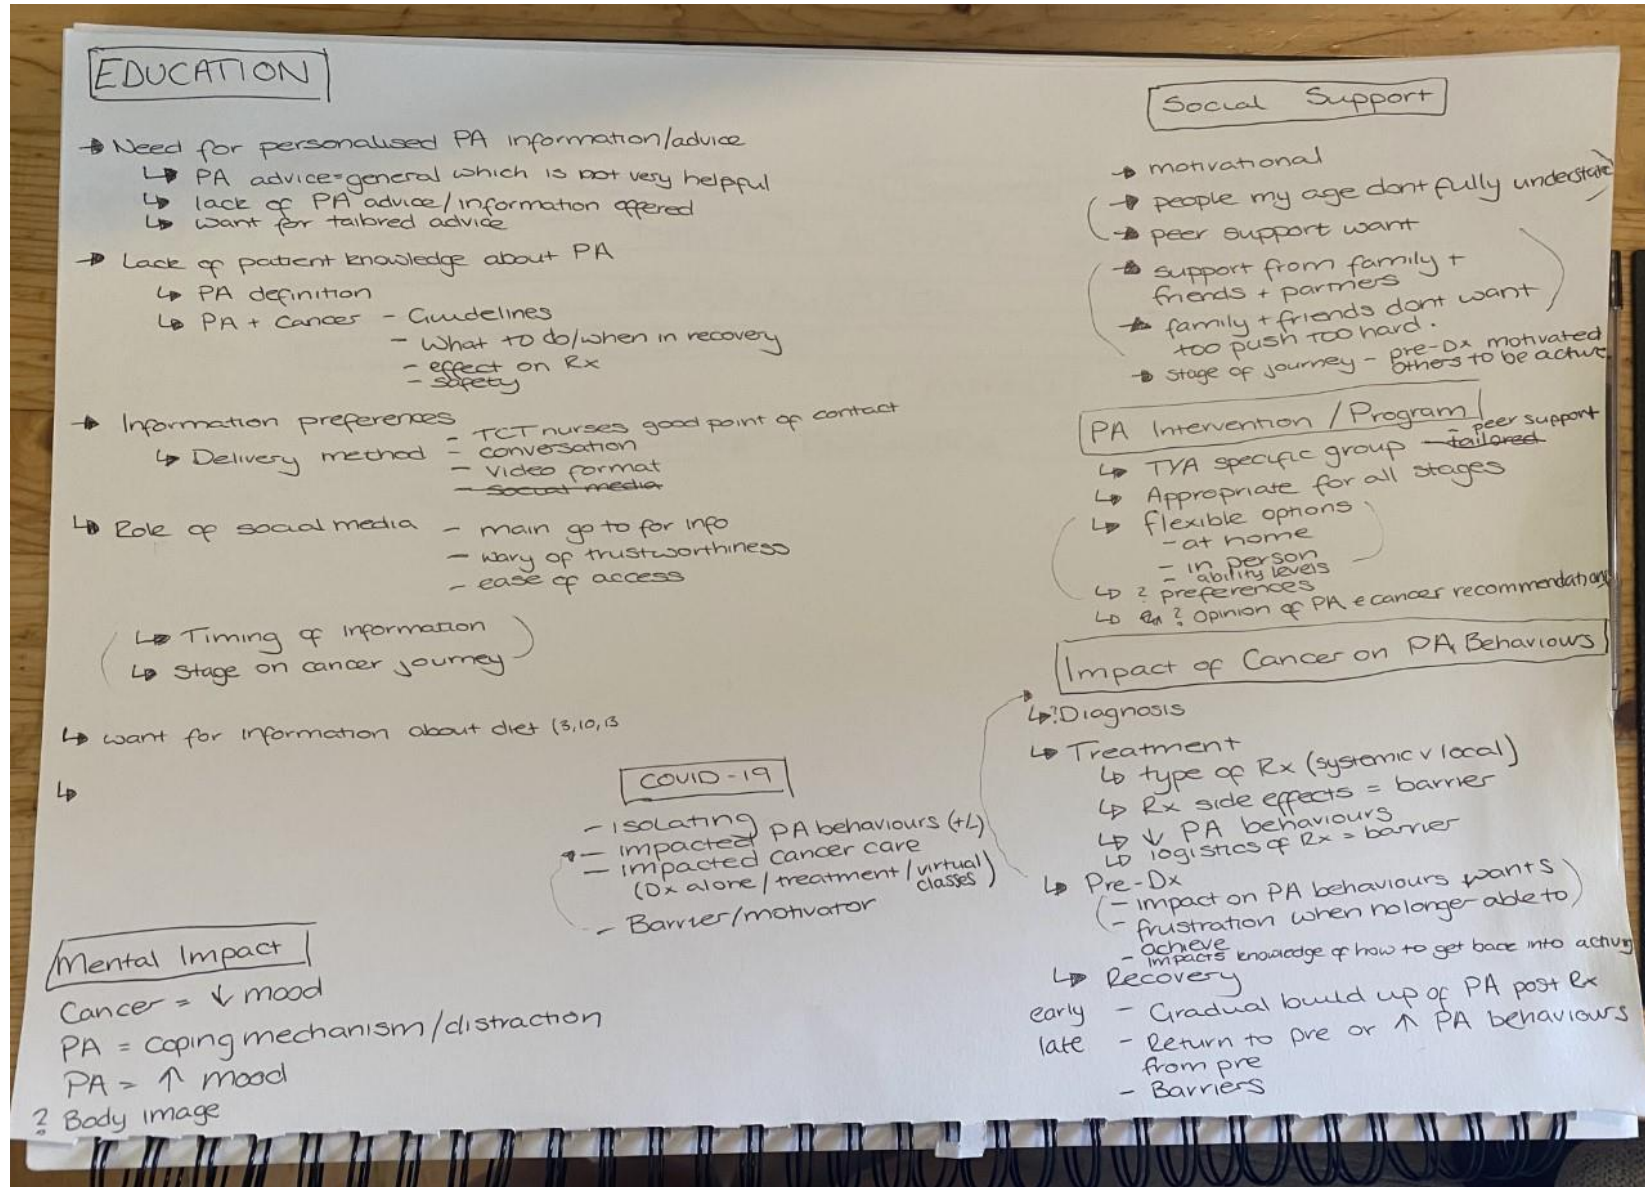 EDUCATION
→ Need for personalised PA information/advice
↳ PA advice=general which is not very helpful
↳ lack of PA advice/information offered
↳ want for tailored advice
→ Lack of patient knowledge about PA
↳ PA definition
↳ PA + cancer - Guidelines
- What to do/when in recovery
- effect on Rx
- safety
→ Information preferences
↳ Delivery method - TCT nurses good point of contact
- conversation
- video format
- social media
↳ Role of social media - main go to for info
- wary of trustworthiness
- ease of access
↳ Timing of information
↳ Stage on cancer journey
↳ want for information about diet (3,10,13
↳
COVID-19
- isolating
- impacted PA behaviours (+L)
- impacted cancer care
(Dx alone/treatment/virtual classes)
- Barrier/motivator
Mental Impact
Cancer = ↓ mood
PA = coping mechanism/distraction
PA = ↑ mood
? Body image
Social Support
→ motivational
→ people my age dont fully understate
→ peer support want
→ support from family +
friends + partners
→ family + friends dont want
too push too hard.
→ stage of journey - pre-Dx motivated
others to be active
PA Intervention / Program
↳ TYA specific group - tailored - peer support
↳ Appropriate for all stages
↳ flexible options
- at home
- in person
- ability levels
↳ ? preferences
↳ ? Opinion of PA c cancer recommendations
Impact of Cancer on PA Behaviours
↳ ?Diagnosis
↳ Treatment
↳ type of Rx (systemic v local)
↳ Rx side effects = barrier
↳ ↓ PA behaviours
↳ logistics of Rx = barrier
↳ Pre-Dx
- impact on PA behaviours wants
- frustration when no longer able to
achieve
- impacts knowledge of how to get back into activity
↳ Recovery
early - Gradual build up of PA post Rx
late - Return to pre or ↑ PA behaviours
from pre
- Barriers